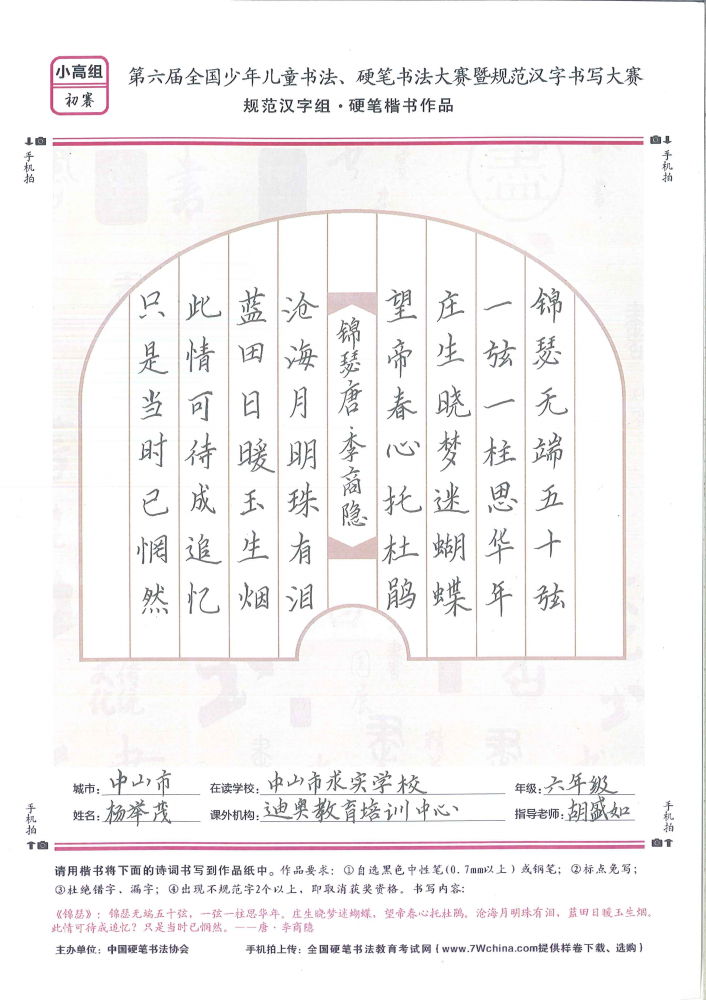 小高组
初赛
第六届全国少年儿童书法、硬笔书法大赛暨规范汉字书写大赛
规范汉字组·硬笔楷书作品
手机拍
手机拍
锦瑟无端五十弦
一弦一柱思华年
庄生晓梦迷蝴蝶
望帝春心托杜鹃
锦瑟唐·李商隐
沧海月明珠有泪
蓝田日暖玉生烟
此情可待成追忆
只是当时已惘然
城市：中山市
在读学校：中山市求实学校
年级：六年级
姓名：杨举茂
课外机构：迪奥教育培训中心
指导老师：胡盛如
手机拍
手机拍
请用楷书将下面的诗词书写到作品纸中。作品要求：①自选黑色中性笔(0.7mm以上)或钢笔；②标点免写；
③杜绝错字、漏字；④出现不规范字2个以上，即取消获奖资格。书写内容：
《锦瑟》：锦瑟无端五十弦，一弦一柱思华年。庄生晓梦迷蝴蝶，望帝春心托杜鹃。沧海月明珠有泪，蓝田日暖玉生烟。
此情可待成追忆？只是当时已惘然。——唐·李商隐
主办单位：中国硬笔书法协会
手机拍上传：全国硬笔书法教育考试网（www.7Wchina.com提供样卷下载、选购）